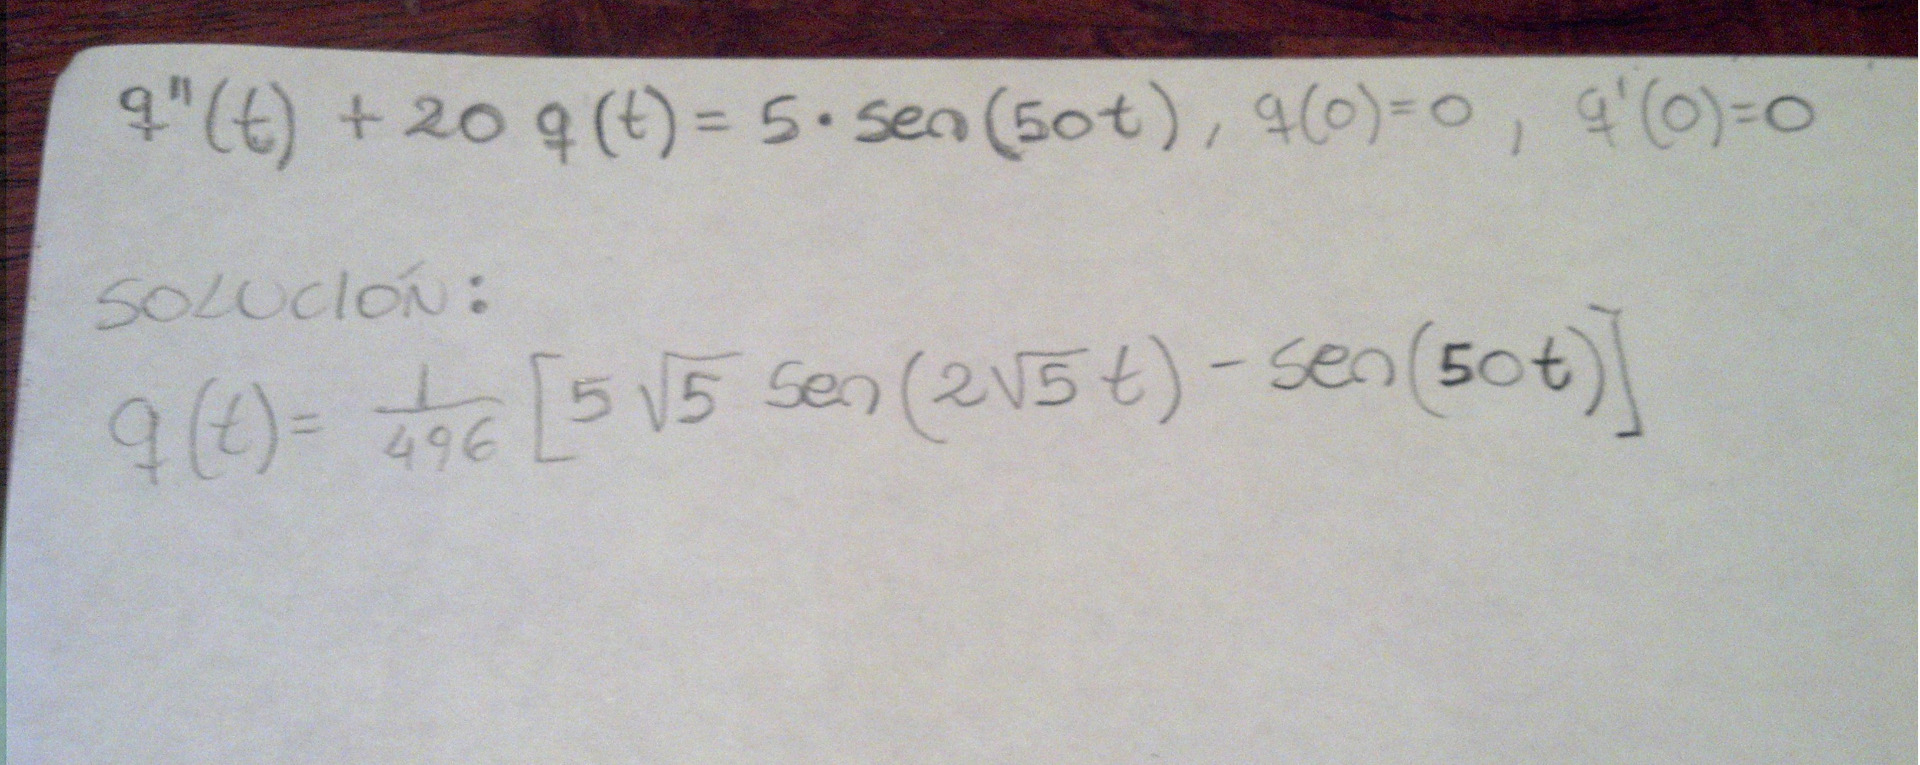 q''(t) + 20 q(t) = 5 · sen(50t), q(0)=0, q'(0)=0
SOLUCIÓN:
q(t) = 1/496 [5 √5 sen(2√5 t) - sen(50t)]